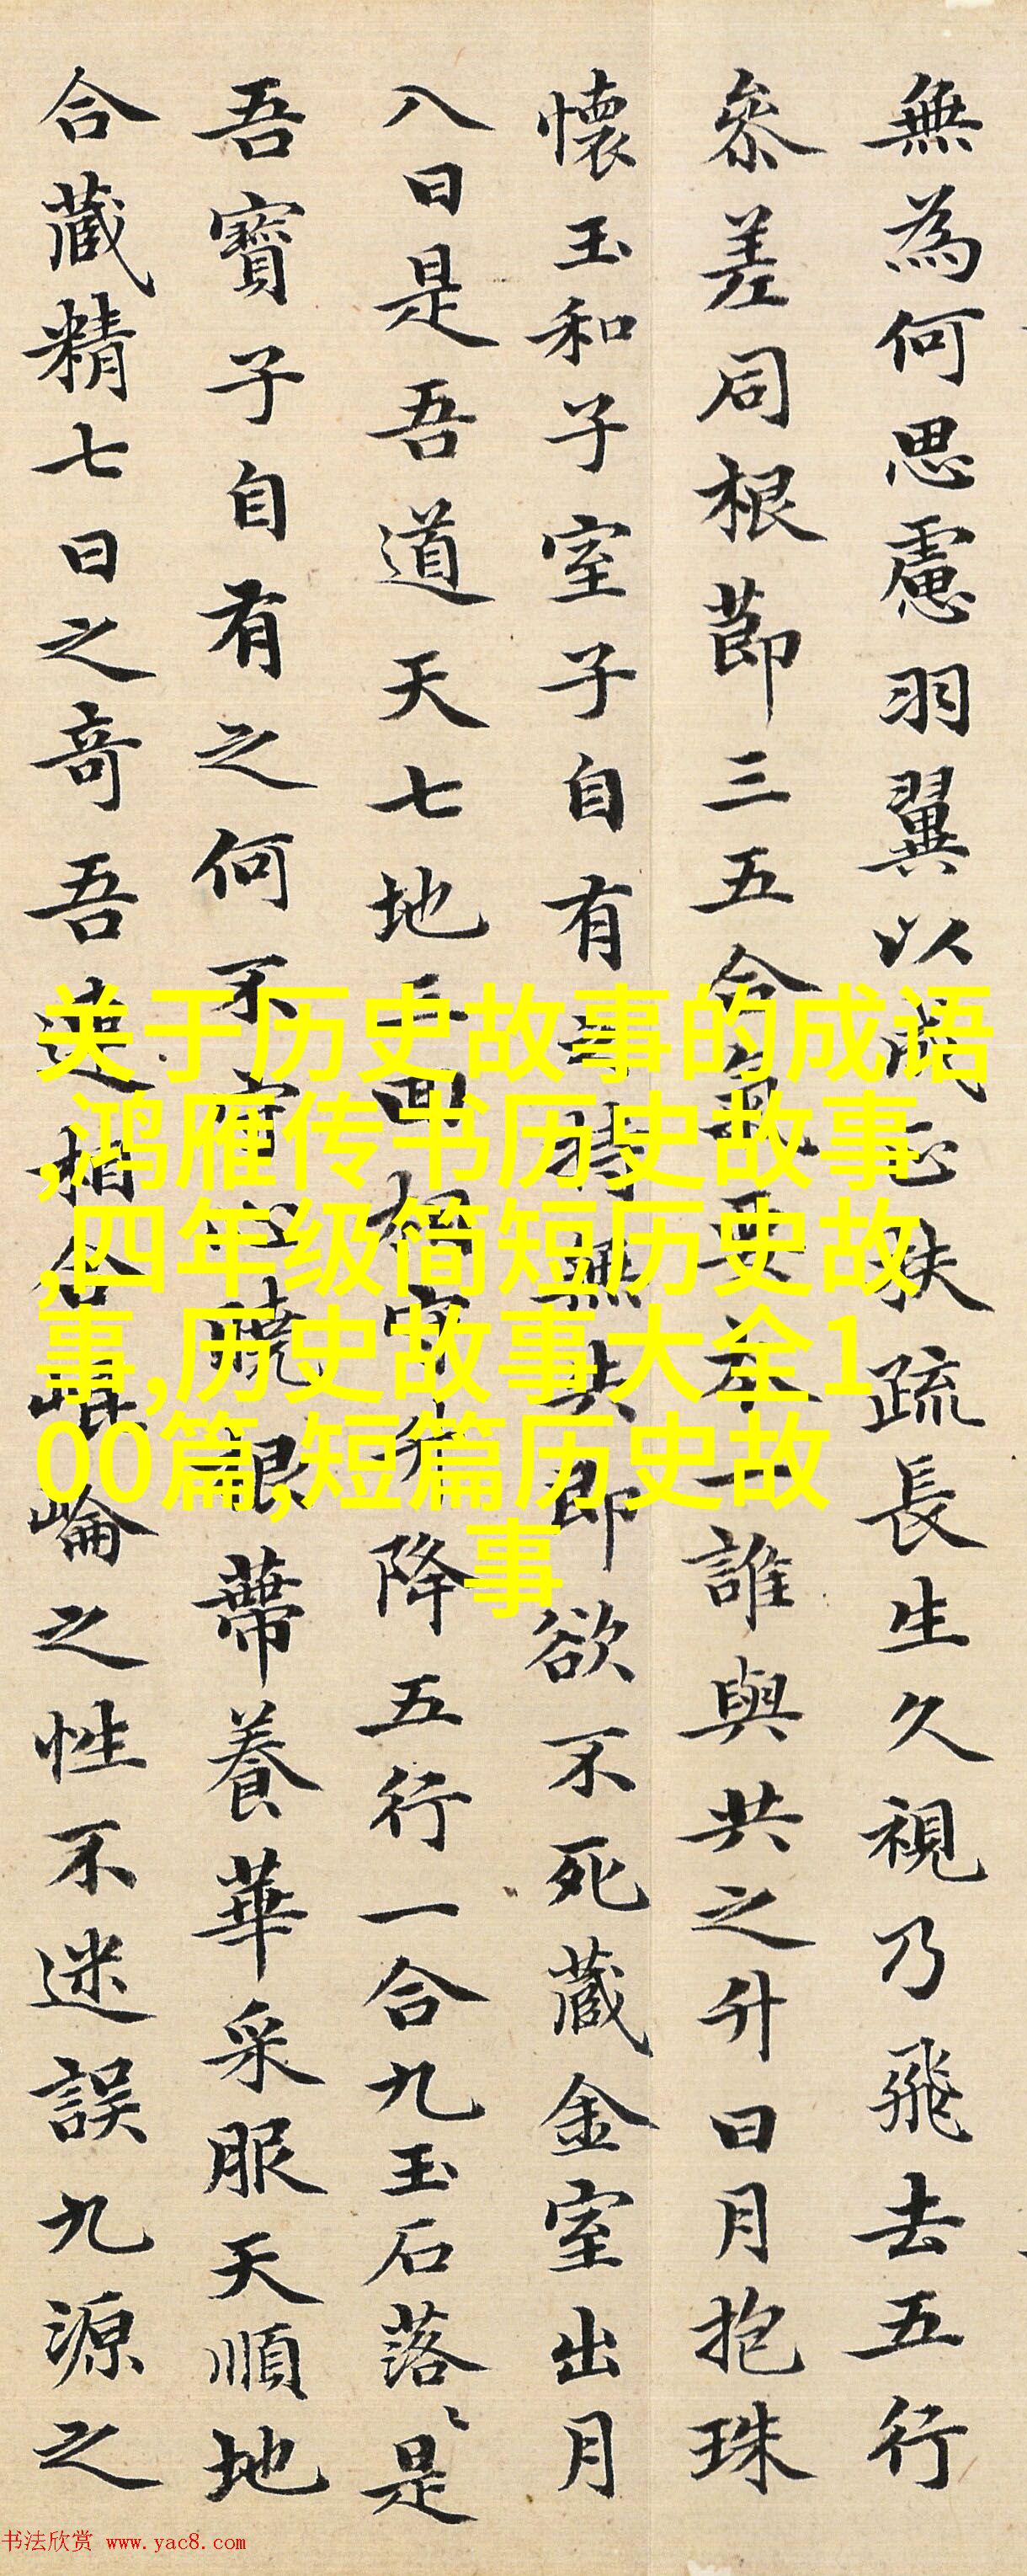 無為何思慮羽翼以成正扶疏長生久視乃飛去五行
參差同根節三五合氣要本一誰與共之升日月抱珠
懷玉和子室子自有之持無失即欲不死藏金室出月
八日是吾道天七地三回相守升降五行一合九玉石落〻是
吾寶子自有之何不守心曉根蔕養華采服天順地
合藏精七日之奇吾連相合崐崘之性不迷誤九源之
关于历史故事的成语
,鸿雁传书历史故事
,四年级简短历史故
事,历史故事大全1
00篇,短篇历史故
事
书法欣赏 www.yac8.com